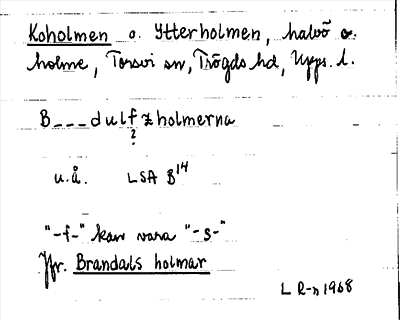 Koholmen o. Ytterholmen, halvö o.
holme, Torsvi sn, Trögds hd, Upps. l.
B___dulfzholmerna
?
u.å. LSA B14
"-f-" kan vara "-s-"
Jfr. Brandals holmar
L R-n 1968